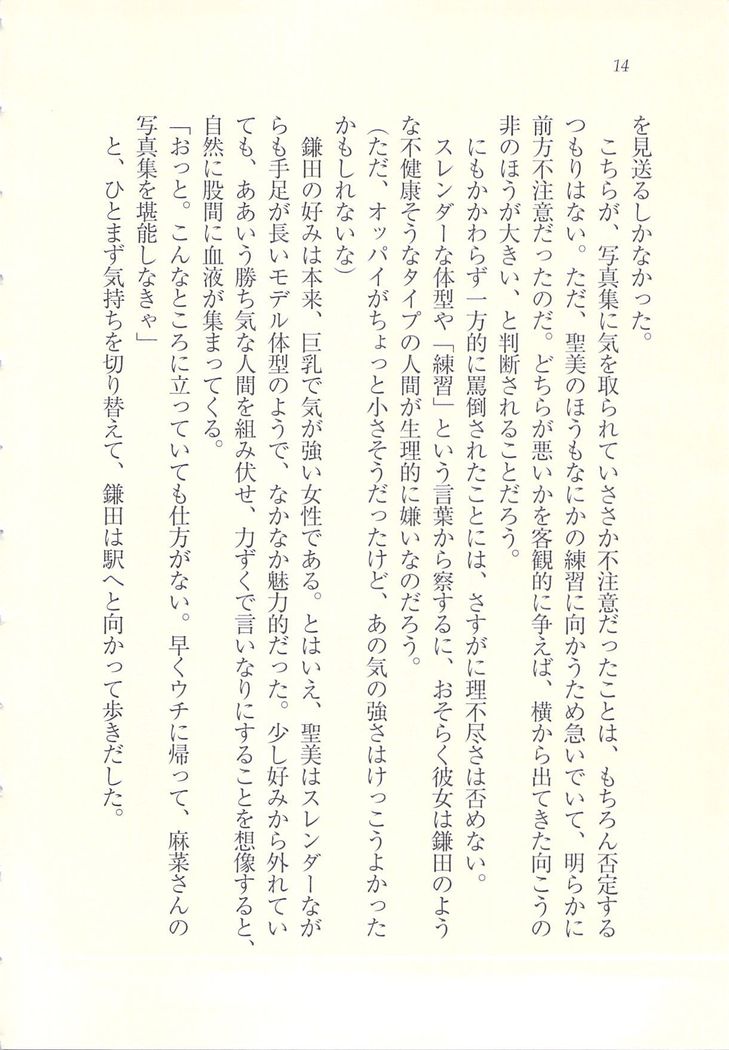 14
を見送るしかなかった。
こちらが、写真集に気を取られていささか不注意だったことは、もちろん否定する
つもりはない。ただ、聖美のほうもなにかの練習に向かうため急いでいて、明らかに
前方不注意だったのだ。どちらが悪いかを客観的に争えば、横から出てきた向こうの
非のほうが大きい、と判断されることだろう。
にもかかわらず一方的に罵倒されたことには、さすがに理不尽さは否めない。
スレンダーな体型や「練習」という言葉から察するに、おそらく彼女は鎌田のよう
な不健康そうなタイプの人間が生理的に嫌いなのだろう。
(ただ、オッパイがちょっと小さそうだったけど、あの気の強さはけっこうよかった
かもしれないな)
鎌田の好みは本来、巨乳で気が強い女性である。とはいえ、聖美はスレンダーなが
らも手足が長いモデル体型のようで、なかなか魅力的だった。少し好みから外れてい
ても、ああいう勝ち気な人間を組み伏せ、力ずくで言いなりにすることを想像すると、
自然に股間に血液が集まってくる。
「おっと。こんなところに立っていても仕方がない。早くウチに帰って、麻菜さんの
写真集を堪能しなきゃ」
と、ひとまず気持ちを切り替えて、鎌田は駅へと向かって歩きだした。